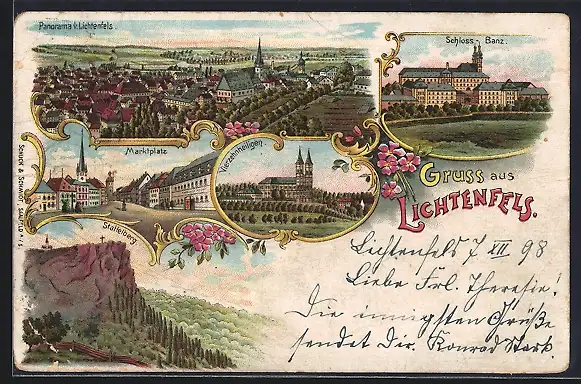 Panorama v. Lichtenfels.
Schloss Banz.
Marktplatz
Vierzehnheiligen
Staffelberg
Gruss aus
LICHTENFELS.
Lichtenfels 7 XII 98
Liebe Frl. Theresie!
Die innigsten Grüße
sendet Dir. Konrad Stark.